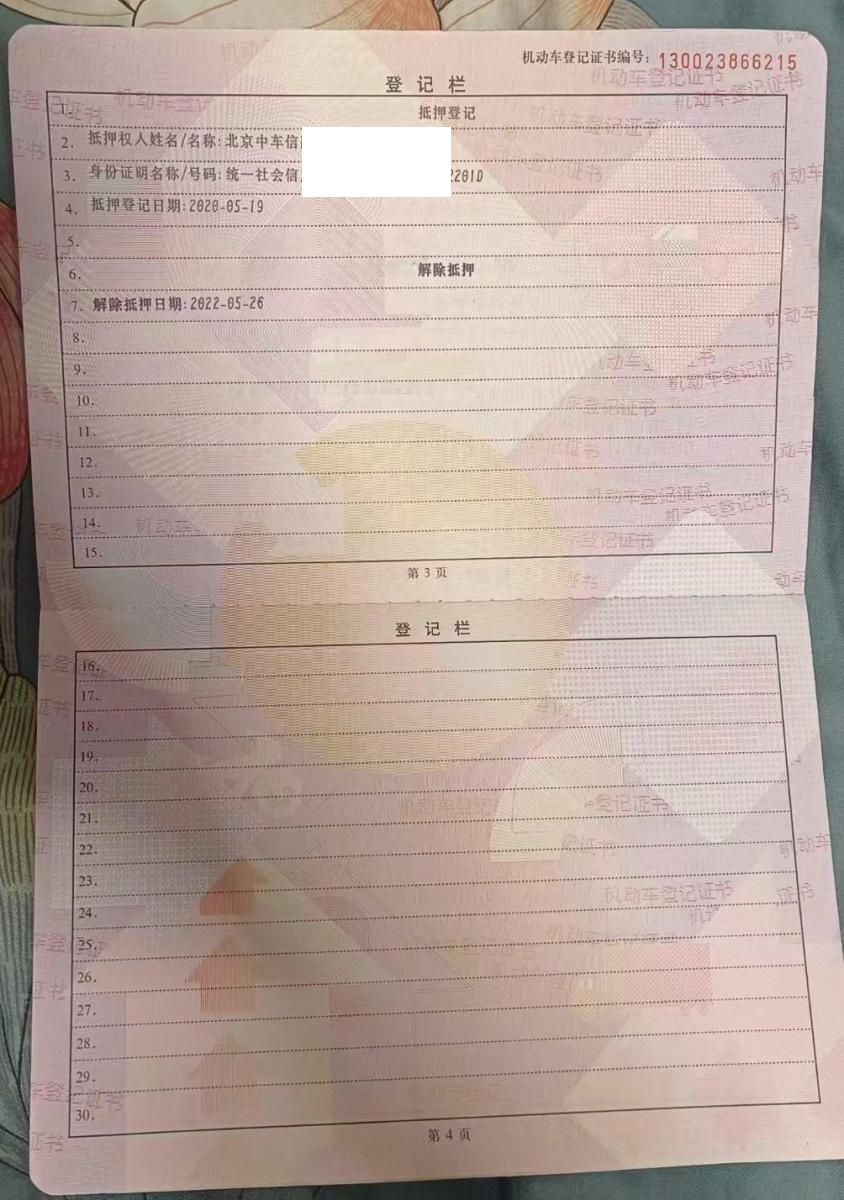 机动车登记证书编号：130023866215
登记栏
1. 抵押登记
2. 抵押权人姓名/名称:北京中车信
3. 身份证明名称/号码:统一社会信 2201D
4. 抵押登记日期:2020-05-19
5.
6. 解除抵押
7. 解除抵押日期:2022-05-26
8.
9.
10.
11.
12.
13.
14.
15.
第 3 页
登记栏
16.
17.
18.
19.
20.
21.
22.
23.
24.
25.
26.
27.
28.
29.
30.
第 4 页